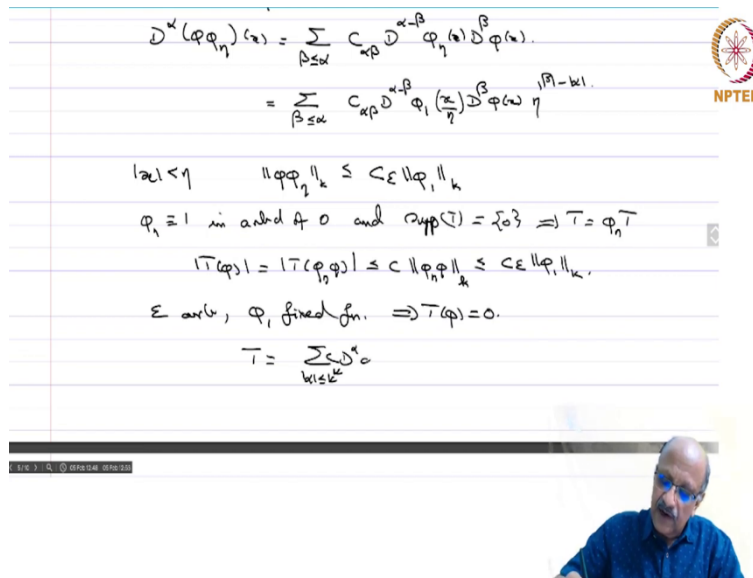 D^α(φφ_η)(x) = Σ_{β≤α} C_{αβ} D^{α-β}φ_η(x) D^βφ(x).
= Σ_{β≤α} C_{αβ} D^{α-β}φ_1(x/η) D^βφ(x) η^{|β|-|α|}.
NPTEL
|x|<η ‖φφ_η‖_k ≤ Cε‖φ_1‖_k
φ_η ≡ 1 in a nbd of 0 and supp(T) = {0} ⇒ T = φ_η T
|T(φ)| = |T(φ_η φ)| ≤ C‖φ_η φ‖_k ≤ Cε‖φ_1‖_k.
ε arb, φ_1 fixed fn. ⇒ T(φ) = 0.
T = Σ_{|α|≤k} C_α D^α
5/10 05 Feb 12:48 05 Feb 12:53